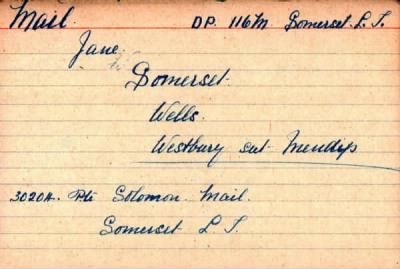 Mail. DP. 116/M Somerset. L. I.
Jane.
Somerset.
Wells.
Westbury sub Mendip
30204. Pte Solomon Mail.
Somerset L I.